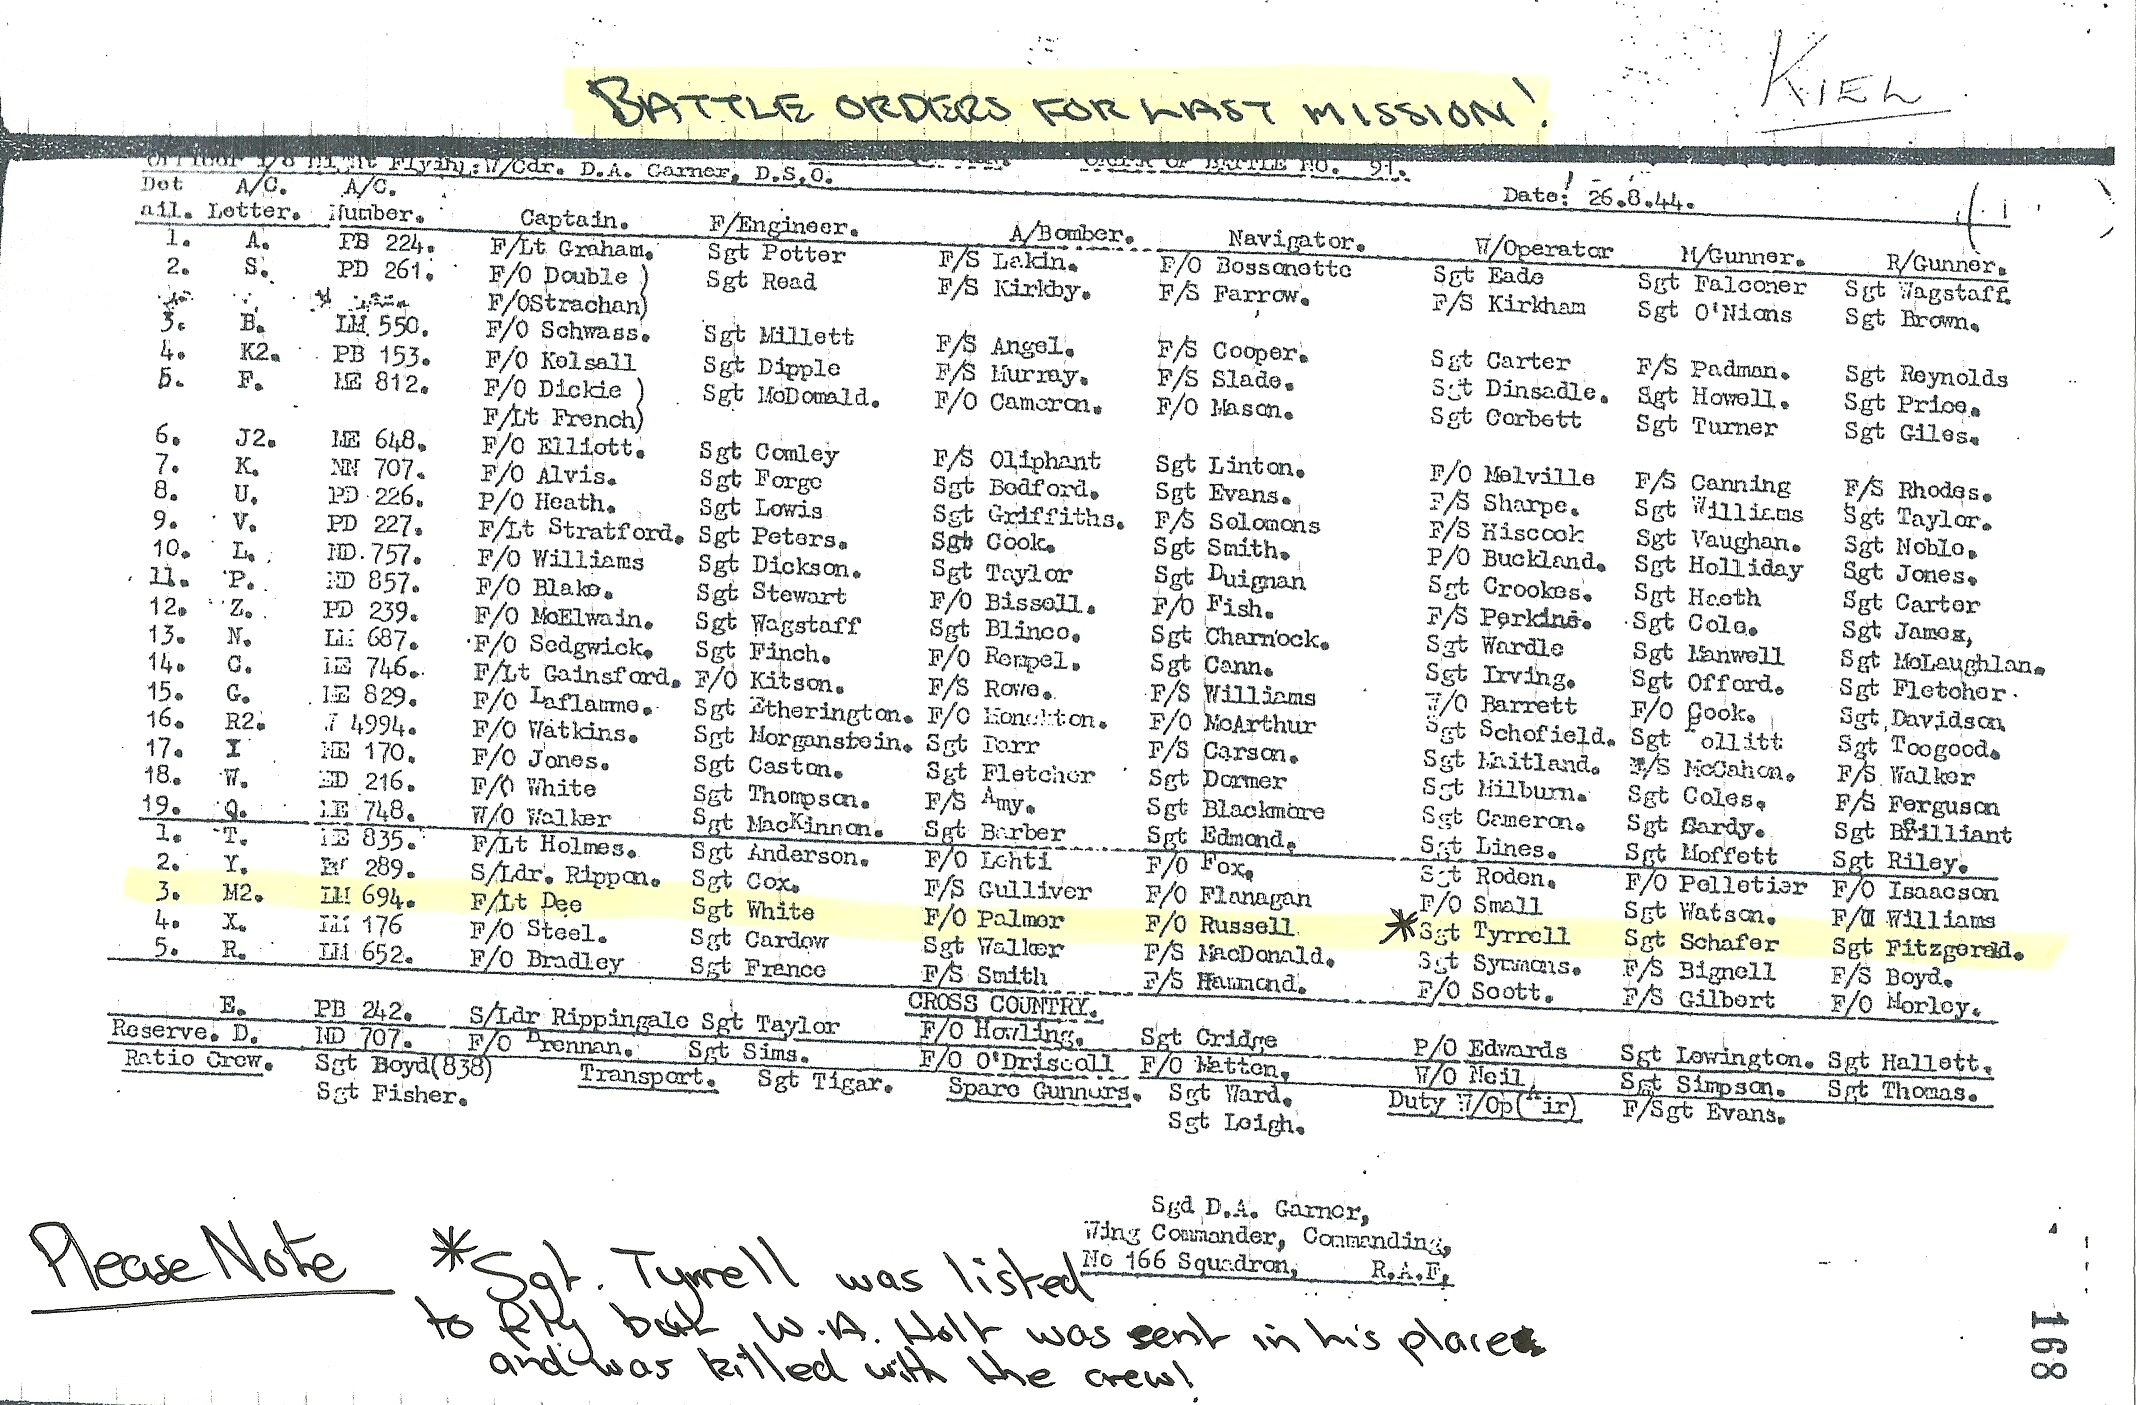 BATTLE ORDERS FOR LAST MISSION!
KIEL
Officer i/c Night Flying: W/Cdr. D.A. Garner, D.S.O. ORDER OF BATTLE NO. 91. Date: 26.8.44.
Det A/C. A/C.
ail. Letter. Number. Captain. F/Engineer. A/Bomber. Navigator. W/Operator M/Gunner. R/Gunner.
1. A. PB 224. F/Lt Graham. Sgt Potter F/S Lakin. F/O Bossonetto Sgt Eade Sgt Falconer Sgt Wagstaff.
2. S. PD 261. F/O Double ) Sgt Read F/S Kirkby. F/S Farrow. F/S Kirkham Sgt O'Nions Sgt Brown.
F/OStrachan)
3. B. LM 550. F/O Schwass. Sgt Millett F/S Angel. F/S Cooper. Sgt Carter F/S Padman. Sgt Reynolds
4. K2. PB 153. F/O Kelsall Sgt Dipple F/S Murray. F/S Slade. Sgt Dinsadle. Sgt Howell. Sgt Price.
5. F. ME 812. F/O Dickie ) Sgt McDonald. F/O Cameron. F/O Mason. Sgt Corbett Sgt Turner Sgt Giles.
F/Lt French)
6. J2. ME 648. F/O Elliott. Sgt Comley F/S Oliphant Sgt Linton. F/O Melville F/S Canning F/S Rhodes.
7. K. NN 707. F/O Alvis. Sgt Forge Sgt Bedford. Sgt Evans. F/S Sharpe. Sgt Williams Sgt Taylor.
8. U. PD 226. P/O Heath. Sgt Lewis Sgt Griffiths. F/S Solomons F/S Hiscock Sgt Vaughan. Sgt Noble.
9. V. PD 227. F/Lt Stratford. Sgt Peters. Sgt Cook. Sgt Smith. P/O Buckland. Sgt Holliday Sgt Jones.
10. L. ND.757. F/O Williams Sgt Dickson. Sgt Taylor Sgt Duignan Sgt Crookes. Sgt Heath Sgt Carter
11. P. ND 857. F/O Blake. Sgt Stewart F/O Bissell. F/O Fish. F/S Perkins. Sgt Cole. Sgt James,
12. Z. PD 239. F/O McElwain. Sgt Wagstaff Sgt Blinco. Sgt Charnock. Sgt Wardle Sgt Manwell Sgt McLaughlan.
13. N. LM 687. F/O Sedgwick. Sgt Finch. F/O Rempel. Sgt Cann. Sgt Irving. Sgt Offord. Sgt Fletcher.
14. C. ME 746. F/Lt Gainsford. F/O Kitson. F/S Rowe. F/S Williams W/O Barrett F/O Cook. Sgt Davidson
15. G. ME 829. F/O Laflamme. Sgt Etherington. F/O F/O McArthur Sgt Schofield. Sgt Follitt Sgt Toogood.
16. R2. 4994. F/O Watkins. Sgt Morganstein. Sgt F/S Carson. Sgt Maitland. F/S McCahon. F/S Walker
17. I 170. F/O Jones. Sgt Caston. Sgt Fletcher Sgt Dormer Sgt Milburn. Sgt Coles. F/S Ferguson
18. W. ED 216. F/O White Sgt Thompson. F/S Amy. Sgt Blackmore Sgt Cameron. Sgt Gardy. Sgt Brilliant
19. Q. ME 748. W/O Walker Sgt MacKinnon. Sgt Barber Sgt Edmond. Sgt Lines. Sgt Moffett Sgt Riley.
1. T. ME 835. F/Lt Holmes. Sgt Anderson. F/O Lehti F/O Fox. Sgt Roden. F/O Pelletier F/O Isaacson
2. Y. 289. S/Ldr. Rippon. Sgt Cox. F/S Gulliver F/O Flanagan F/O Small Sgt Watson. Williams
3. M2. LM 694. F/Lt Dee Sgt White F/O Palmer F/O Russell * Sgt Tyrrell Sgt Schafer Sgt Fitzgerald.
4. X. LM 176 F/O Steel. Sgt Cardow Sgt Walker F/S MacDonald. Sgt Symmons. F/S Bignell F/S Boyd.
5. R. LM 652. F/O Bradley Sgt France F/S Smith F/S Hammond. F/O Scott. F/S Gilbert F/O Morley.
CROSS COUNTRY.
E. PB 242. S/Ldr Rippingale Sgt Taylor F/O Howling. Sgt Cridge P/O Edwards Sgt Lewington. Sgt Hallett.
Reserve. D. ND 707. F/O Brennan. Sgt Sims. F/O O'Driscoll F/O Matten. W/O Neil. Sgt Simpson. Sgt Thomas.
Ratio Crew. Sgt Boyd(838) Transport. Sgt Tigar. Spare Gunners. Sgt Ward. Duty W/Op(Air) F/Sgt Evans.
Sgt Fisher. Sgt Leigh.
Sgd D.A. Garner,
Wing Commander, Commanding,
No 166 Squadron, R.A.F.
Please Note * Sgt. Tyrrell was listed
to fly but W.A. Holt was sent in his place
and was killed with the crew!
168